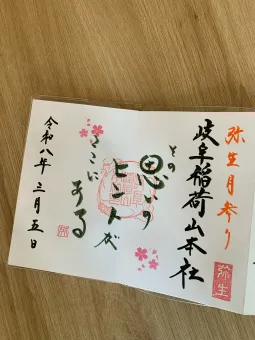 弥生月参り
岐阜稲荷山本社
弥生
その
思いの
ヒントが
ここに
ある
令和八年三月五日